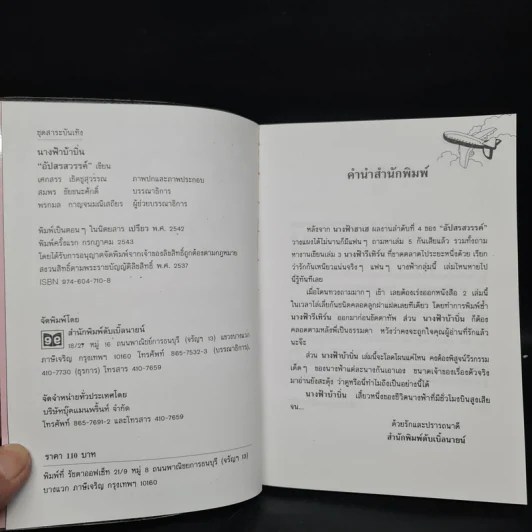 ชุดสาระบันเทิง
นางฟ้าบ้าบิ่น
"อัปสรสวรรค์" เขียน
เศกสรร เชิดชูสุวรรณ ภาพปกและภาพประกอบ
สมพร ชัยธนะศักดิ์ บรรณาธิการ
พรกมล กาญจนมณีเสถียร ผู้ช่วยบรรณาธิการ
พิมพ์เป็นตอนๆ ในนิตยสาร เปรียว พ.ศ. 2542
พิมพ์ครั้งแรก กรกฎาคม 2543
โดยได้รับการอนุญาตจัดพิมพ์จากเจ้าของลิขสิทธิ์ถูกต้องตามกฎหมาย
สงวนสิทธิ์ตามพระราชบัญญัติลิขสิทธิ์ พ.ศ. 2537
ISBN 974-604-710-8
จัดพิมพ์โดย
สำนักพิมพ์ดับเบิ้ลนายน์
18/21 หมู่ 16 ถนนพาณิชยการธนบุรี (จรัญฯ 13) แขวงบางแวก
ภาษีเจริญ กรุงเทพฯ 10160 โทรศัพท์ 865-7532-3 (บรรณาธิการ),
410-7730 (ธุรการ) โทรสาร 410-7659
จัดจำหน่ายทั่วประเทศโดย
บริษัทบุ๊คแมนพริ้นท์ จำกัด
โทรศัพท์ 865-7691-2 และโทรสาร 410-7659
ราคา 110 บาท
พิมพ์ที่ วัชดาออฟเซ็ท 21/9 หมู่ 8 ถนนพาณิชยการธนบุรี (จรัญฯ 13)
บางแวก ภาษีเจริญ กรุงเทพฯ 10160
คำนำสำนักพิมพ์
หลังจาก นางฟ้าสาเฮ ผลงานลำดับที่ 4 ของ "อัปสรสวรรค์"
วางแผงได้ไม่นานก็มีแฟนๆ ถามหาเล่ม 5 กันเสียแล้ว รวมทั้งถาม
หางานเขียนเล่ม 3 นางฟ้าวีรเทิร์น ที่ขาดตลาดไประยะหนึ่งด้วย เรียก
ว่ารักกันเหนียวแน่นจริงๆ แฟนๆ นางฟ้ากลุ่มนี้ เล่มไหนหายไป
นี่รู้ทันทีเลย
เมื่อโดนทวงถามมากๆ เข้า เลยต้องเร่งออกหนังสือ 2 เล่มนี้
ในเวลาไล่เลี่ยกันชนิดคลอดลูกฝาแฝดเลยทีเดียว โดยทำการพิมพ์ซ้ำ
นางฟ้ารีเทิร์น ออกมาก่อนขัดตาทัพ ส่วน นางฟ้าบ้าบิ่น ก็ต้อง
คลอดตามหลังพี่เป็นธรรมดา หวังว่าคงจะถูกใจคุณผู้อ่านที่รักแล้ว
นะจ๊ะ
ส่วน นางฟ้าบ้าบิ่น เล่มนี้จะโลดโผนแค่ไหน คงต้องพิสูจน์วีรกรรม
เด็ดๆ ของนางฟ้าแต่ละนางกันเอาเอง ขนาดเจ้าของเรื่องตัวจริง
มาอ่านยังสะดุ้ง ว่าดูหรือนี่ทำไมถึงเป็นอย่างนี้ได้
นางฟ้าบ้าบิ่น เสี้ยวหนึ่งของชีวิตนางฟ้าที่มีชั่วโมงบินสูงเสีย
จน...
ด้วยรักและปรารถนาดี
สำนักพิมพ์ดับเบิ้ลนายน์